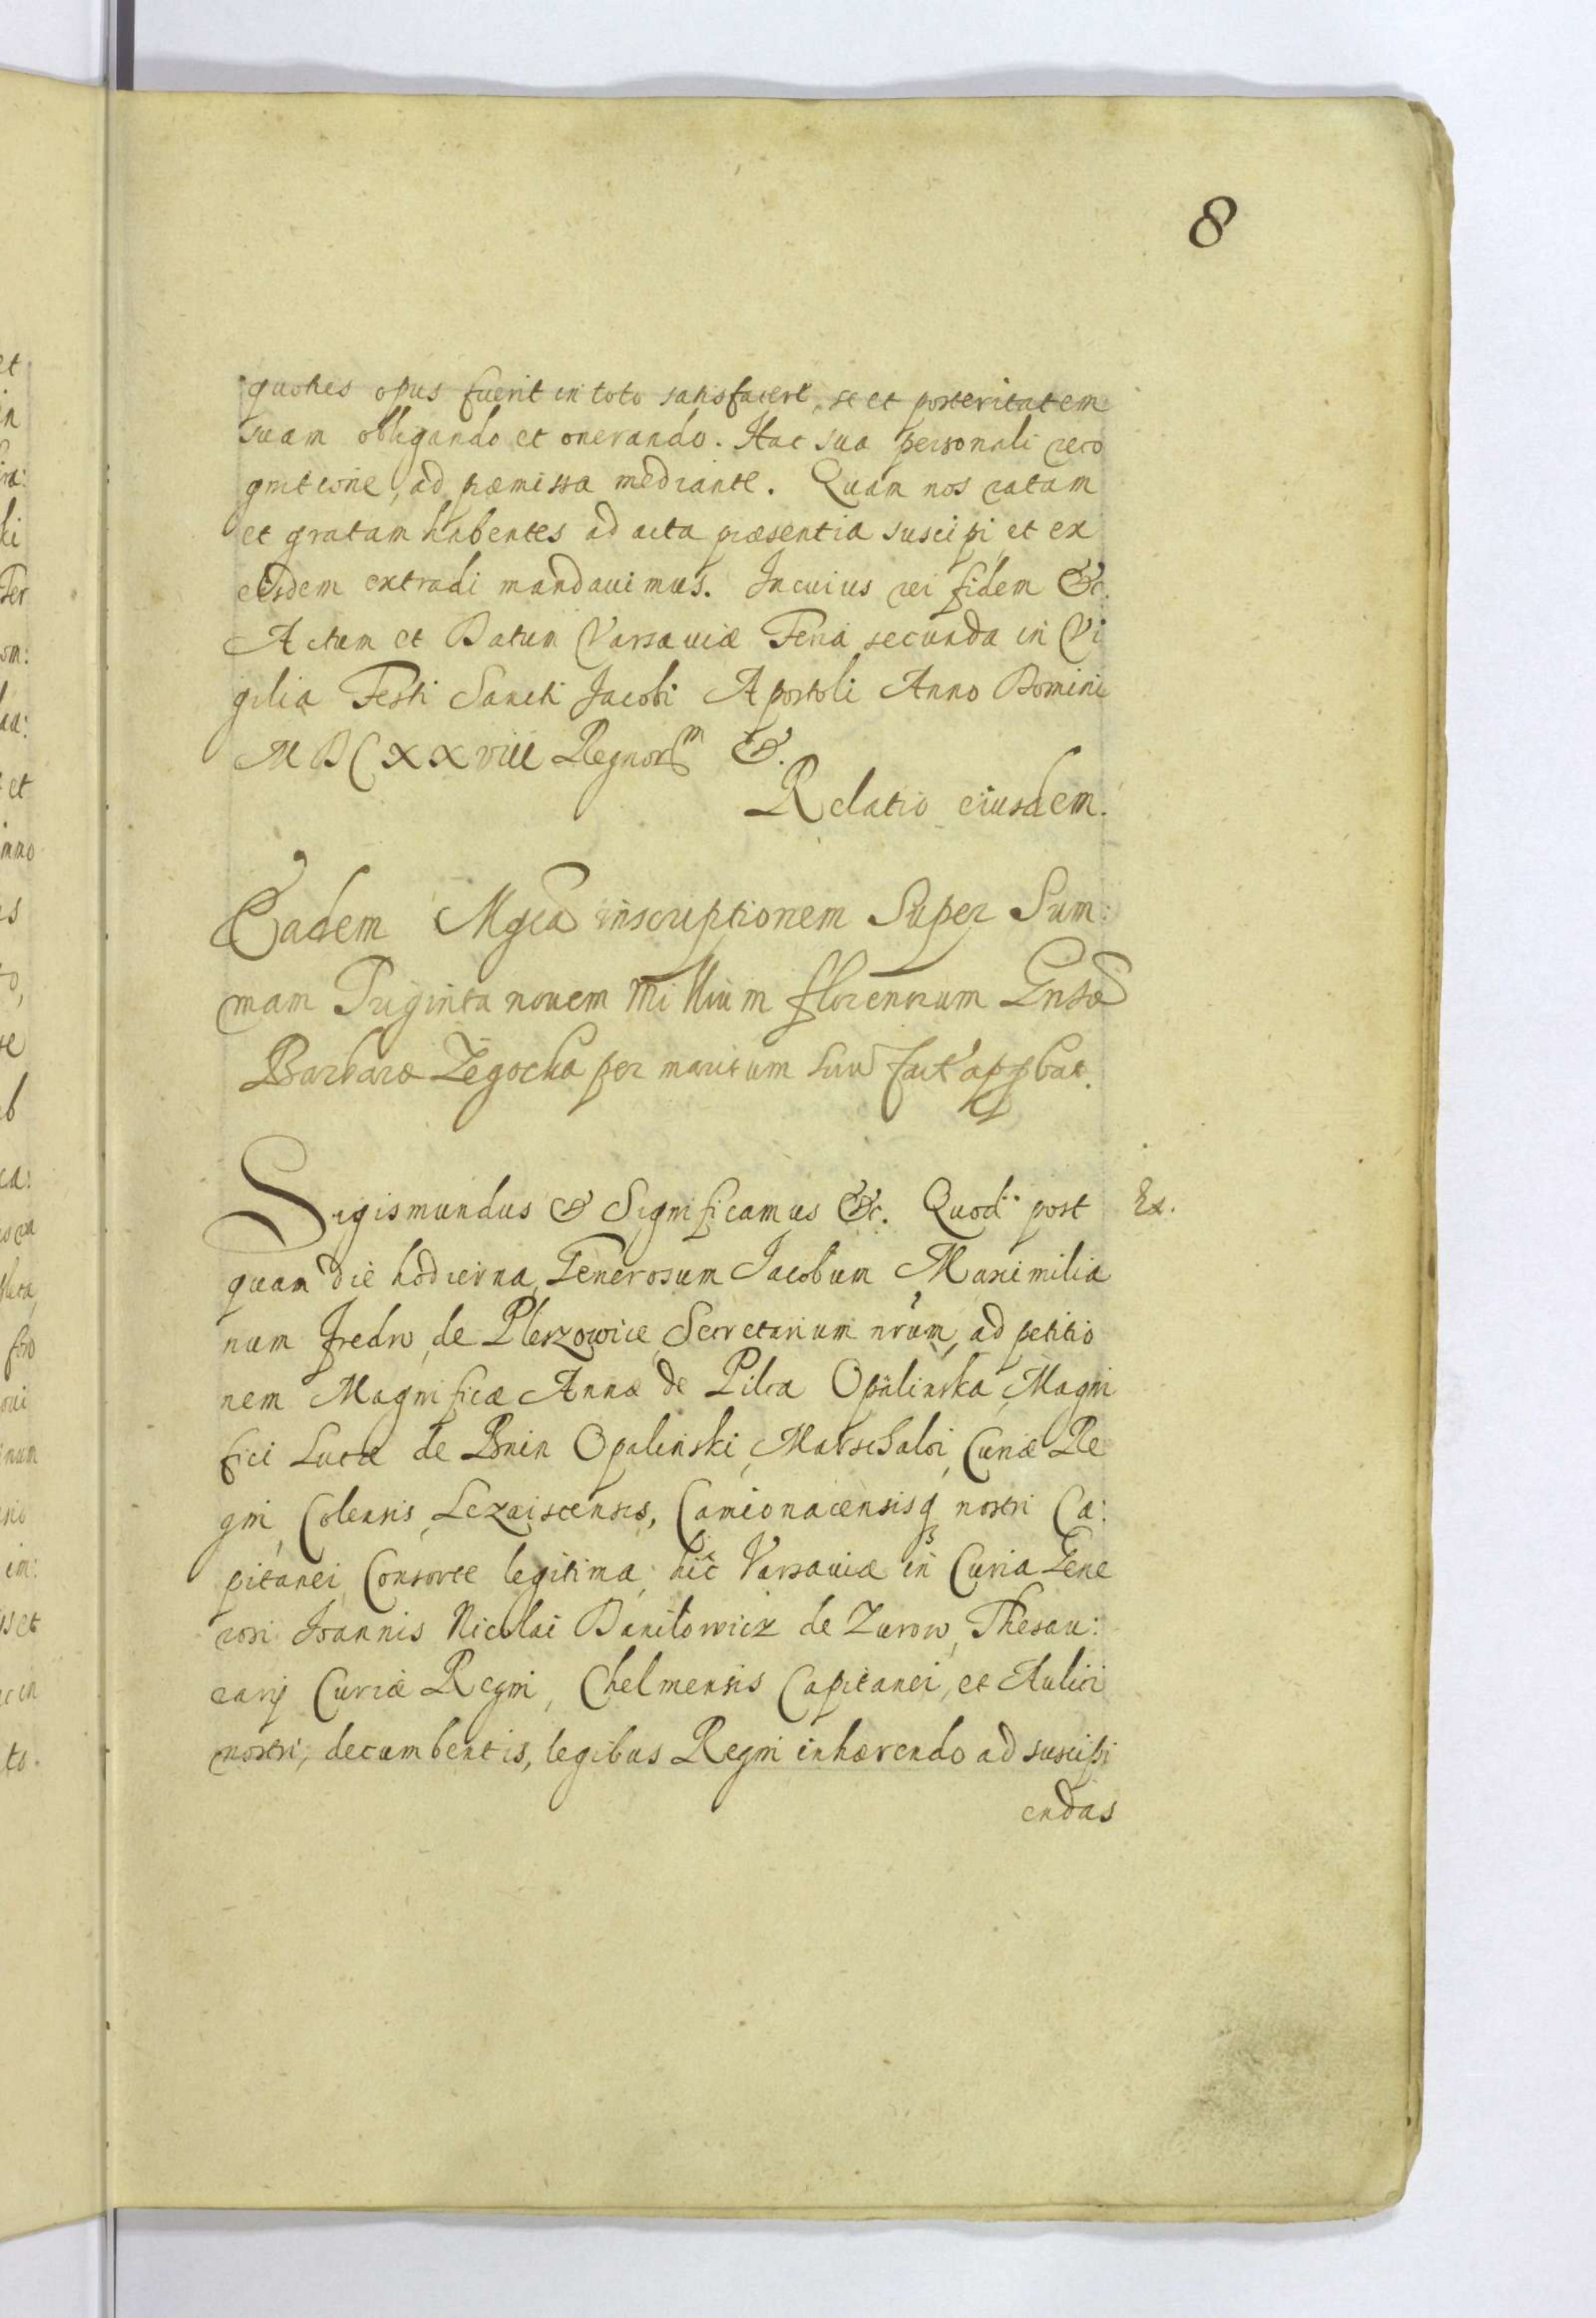 8
quoties opus fuerit in toto satisfacere, se et posteritatem
suam obligando et onerando. Hac sua personali reco
gnitione, ad præmissa mediante. Quam nos ratam
et gratam habentes ad acta præsentia suscipi et ex
eisdem extradi mandauimus. In cuius rei fidem &c.
Actum et Datum Varsauiæ Feria secunda in Vi
gilia Festi Sancti Jacobi Apostoli Anno Domini
MDCXXVIII Regnorum &.
Relatio eiusdem.
Eadem Mgca inscriptionem Super Sum:
mam Triginta nouem Millium florenorum Gnsæ
Barbaræ Zegocka per maritum suu fact' appbat.
Sigismundus & Significamus &c. Quod post
Ex.
quam die hodierna, Generosum Jacobum Maximilia
num Fredro, de Pleszowice, Secretarium nrum, ad petitio
nem Magnificæ Annæ de Pilca Opalinska, Magni
fici Lucæ de Bnin Opalinski, Marschalci, Curiæ Re
gni, Colensis, Lezaiscensis, Camionacensisq nostri Ca:
pitanei, Consorte legitima, hic Varsauiæ in Curia Gene
rosi Joannis Nicolai Danilowicz de Zurow, Thesau:
rarij Curiæ Regni, Chelmensis Capitanei, et Aulici
nostri, decumbentis, legibus Regni inhærendo ad suscipi
endas